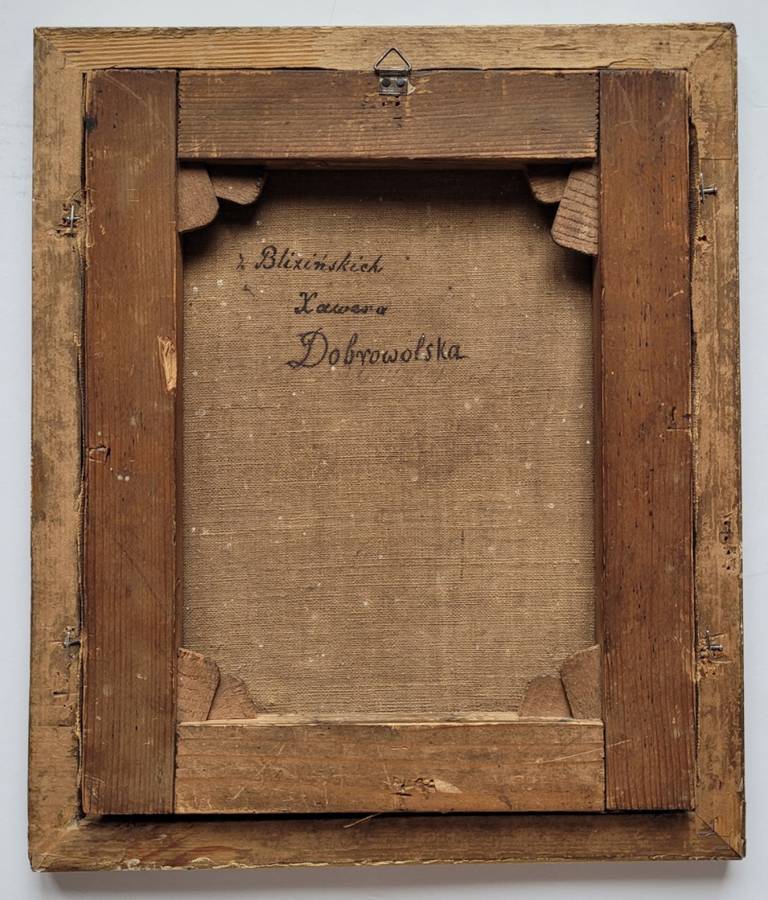 z Blizińskich
Xawera
Dobrowolska